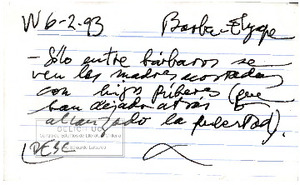 W6-2.93 Barba-Elype
- Sólo entre bárbaros se
ven las madres acostadas
con hijos púberes (que
han dejado atrás o
alcanzado la pubertad).
DELICTUO
DESE